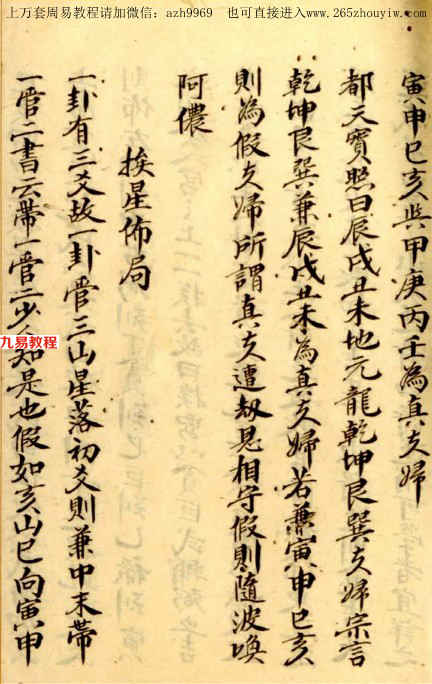 上万套周易教程请加微信：azh9969 也可直接进入www.265zhouyiw.com
寅申巳亥與甲庚丙壬為真夫婦
都天寶照曰辰戌丑未地元龍乾坤艮巽夫婦宗言
乾坤艮巽兼辰戌丑未為真夫婦若兼寅申巳亥
則為假夫婦所謂真夫遭刼恳相守假則隨波喚
阿儂
挨星佈局
一卦有三爻故一卦管三山星落初爻則兼中末帶
一管二書云帶一管二少人知是也假如亥山巳向寅申
九易教程